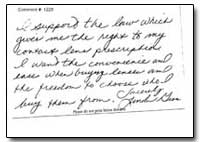 Comment #: 1228
I support the law which
gives me the right to my
contact lens prescription.
I want the convenience and
ease when buying lenses and
the freedom to choose who I
buy them from. Sincerely
Please do not write below this line